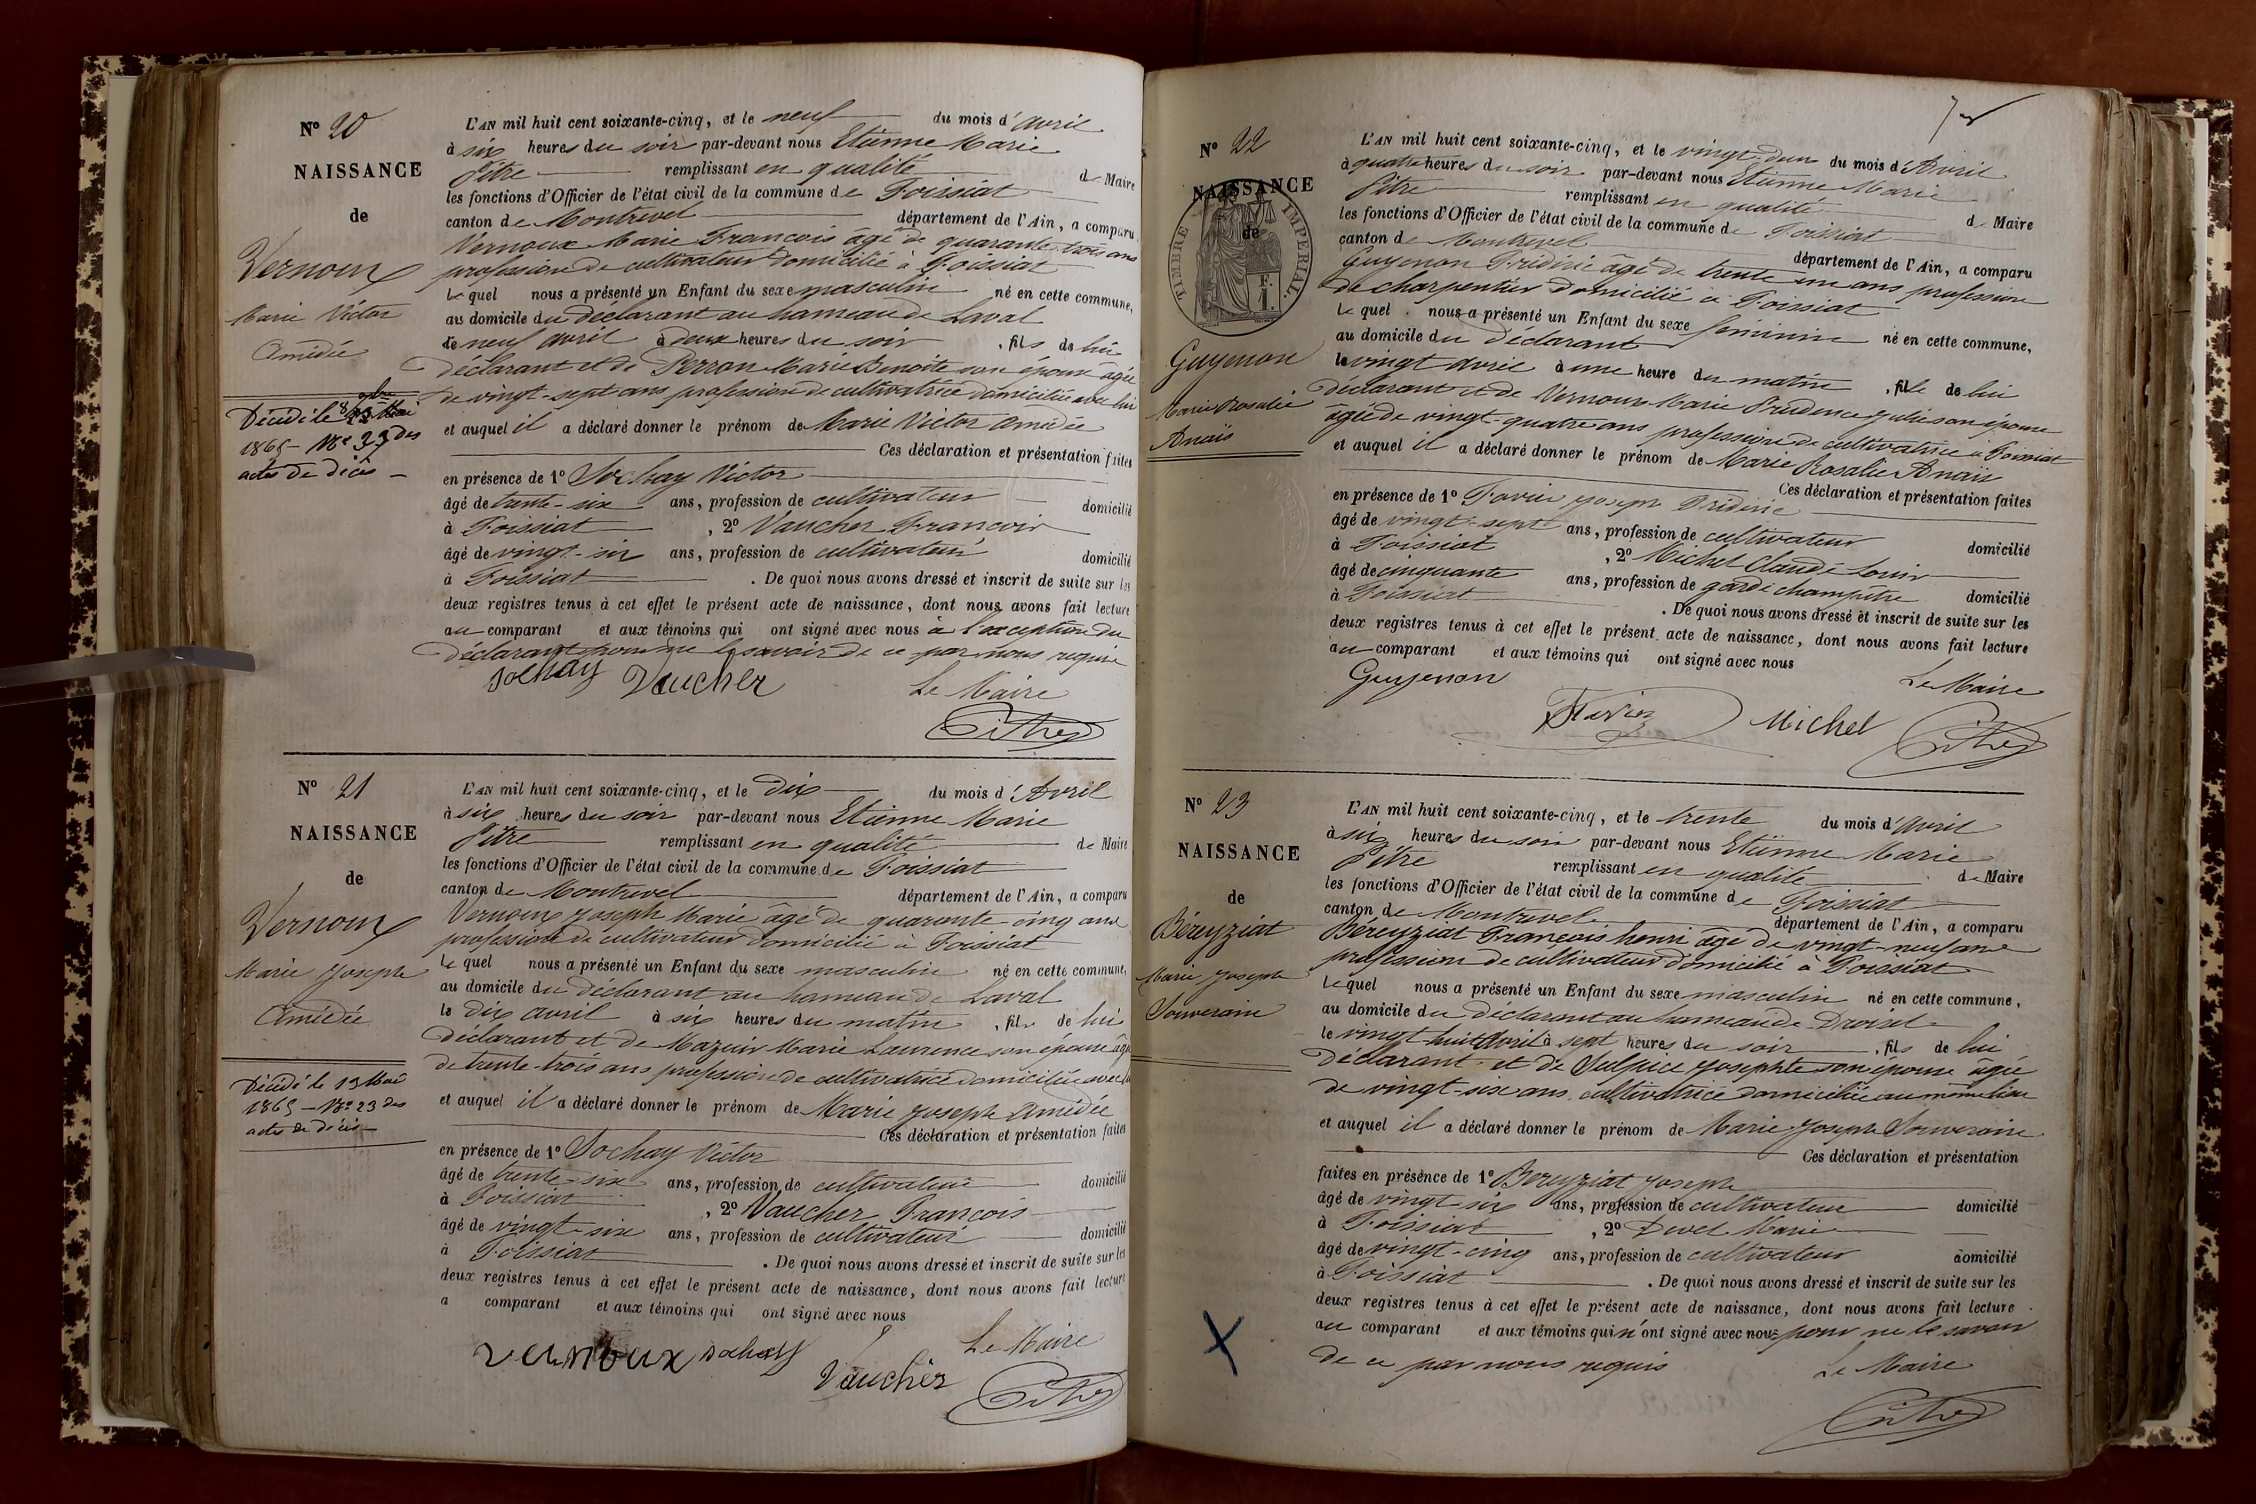 Nº 20
NAISSANCE
de
Vernoux
Marie Victor
Amédée
Décédé le
1865 - Nº 33 des
actes de décès -
L'AN mil huit cent soixante-cinq, et le neuf du mois d'avril
à six heures du soir par-devant nous Etienne Marie
Pitre remplissant en qualité de Maire
les fonctions d'Officier de l'état civil de la commune de Foissiat
canton de Montrevel département de l'Ain, a comparu
Vernoux Marie François âgé de quarante-trois ans
profession de cultivateur domicilié à Foissiat
Lequel nous a présenté un Enfant du sexe masculin né en cette commune,
au domicile du déclarant au hameau de Laval
le neuf avril à deux heures du soir, fils de lui
déclarant et de Perron Marie Benoite son épouse âgée
de vingt-sept ans profession de cultivatrice domiciliée avec lui
et auquel il a déclaré donner le prénom de Marie Victor Amédée
Ces déclaration et présentation faites
en présence de 1º Sochay Victor
âgé de trente-six ans, profession de cultivateur domicilié
à Foissiat, 2º Vaucher François
âgé de vingt-six ans, profession de cultivateur domicilié
à Foissiat. De quoi nous avons dressé et inscrit de suite sur les
deux registres tenus à cet effet le présent acte de naissance, dont nous avons fait lecture
au comparant et aux témoins qui ont signé avec nous à l'exception du
déclarant pour ne le savoir de ce par nous requis
Sochay Vaucher Le Maire
Pitre
Nº 21
NAISSANCE
de
Vernoux
Marie Joseph
Amédée
Décédé le 13 Mai
1865 - Nº 23 des
actes de décès -
L'AN mil huit cent soixante-cinq, et le dix du mois d'Avril
à six heures du soir par-devant nous Etienne Marie
Pitre remplissant en qualité de Maire
les fonctions d'Officier de l'état civil de la commune de Foissiat
canton de Montrevel département de l'Ain, a comparu
Vernoux Joseph Marie âgé de quarante-cinq ans
profession de cultivateur domicilié à Foissiat
Lequel nous a présenté un Enfant du sexe masculin né en cette commune,
au domicile du déclarant au hameau de Laval
le dix avril à six heures du matin, fils de lui
déclarant et de Mazuir Marie Laurence son épouse âgée
de trente-trois ans profession de cultivatrice domiciliée avec lui
et auquel il a déclaré donner le prénom de Marie Joseph Amédée
Ces déclaration et présentation faites
en présence de 1º Sochay Victor
âgé de trente-six ans, profession de cultivateur domicilié
à Foissiat, 2º Vaucher François
âgé de vingt-six ans, profession de cultivateur domicilié
à Foissiat. De quoi nous avons dressé et inscrit de suite sur les
deux registres tenus à cet effet le présent acte de naissance, dont nous avons fait lecture
a comparant et aux témoins qui ont signé avec nous
Vernoux Sochay Vaucher Le Maire
Pitre
Nº 22
NAISSANCE
de
TIMBRE IMPERIAL.
F.
1.
Guyenon
Marie Rosalie
Anaïs
L'AN mil huit cent soixante-cinq, et le vingt-deux du mois d'Avril
à quatre heures du soir par-devant nous Etienne Marie
Pitre remplissant en qualité de Maire
les fonctions d'Officier de l'état civil de la commune de Foissiat
canton de Montrevel département de l'Ain, a comparu
Guyenon Frédéric âgé de trente un ans profession
de charpentier domicilié à Foissiat
Lequel nous a présenté un Enfant du sexe féminin né en cette commune,
au domicile du déclarant
le vingt avril à une heure du matin, fille de lui
déclarant et de Vernoux Marie Prudence Julie son épouse
âgée de vingt-quatre ans profession de cultivatrice à Foissiat
et auquel il a déclaré donner le prénom de Marie Rosalie Anaïs
Ces déclaration et présentation faites
en présence de 1º Favier Joseph Frédéric
âgé de vingt-sept ans, profession de cultivateur domicilié
à Foissiat, 2º Michel Claude Louis
âgé de cinquante ans, profession de garde champêtre domicilié
à Foissiat. De quoi nous avons dressé et inscrit de suite sur les
deux registres tenus à cet effet le présent acte de naissance, dont nous avons fait lecture
au comparant et aux témoins qui ont signé avec nous
Guyenon Le Maire
Favier Michel Pitre
Nº 23
NAISSANCE
de
Béreyziat
Marie Joseph
Souverain
L'AN mil huit cent soixante-cinq, et le trente du mois d'avril
à six heures du soir par-devant nous Etienne Marie
Pitre remplissant en qualité de Maire
les fonctions d'Officier de l'état civil de la commune de Foissiat
canton de Montrevel département de l'Ain, a comparu
Béreyziat François henri âgé de vingt-neuf ans
profession de cultivateur domicilié à Foissiat
Lequel nous a présenté un Enfant du sexe masculin né en cette commune,
au domicile du déclarant au hameau de
le vingt huit Avril à sept heures du soir, fils de lui
déclarant et de Sulpice Josephte son épouse âgée
de vingt-six ans cultivatrice domiciliée au même lieu
et auquel il a déclaré donner le prénom de Marie Joseph Souverain
Ces déclaration et présentation
faites en présence de 1º Béreyziat Joseph
âgé de vingt six ans, profession de cultivateur domicilié
à Foissiat, 2º Divet Marie
âgé de vingt-cinq ans, profession de cultivateur domicilié
à Foissiat. De quoi nous avons dressé et inscrit de suite sur les
deux registres tenus à cet effet le présent acte de naissance, dont nous avons fait lecture
au comparant et aux témoins qui n'ont signé avec nous pour ne le savoir
de ce par nous requis Le Maire
Pitre